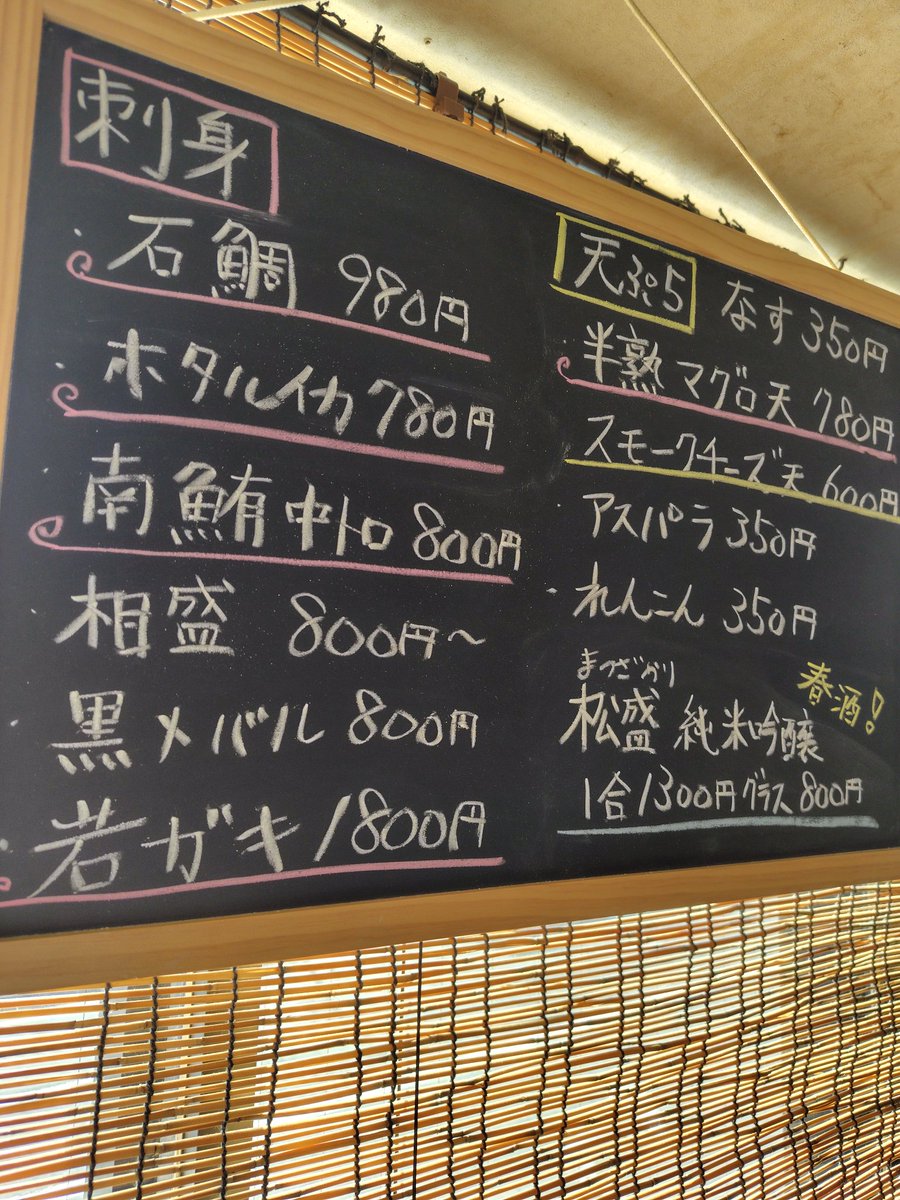 刺身
・石鯛 980円
・ホタルイカ 780円
・南鮪中トロ 800円
・相盛 800円～
・黒メバル 800円
・岩ガキ 1800円
天ぷら なす 350円
・半熟マグロ天 780円
スモークチーズ天 600円
・アスパラ 350円
・れんこん 350円
まつざかり 春酒!
松盛 純米吟醸
1合1300円グラス800円